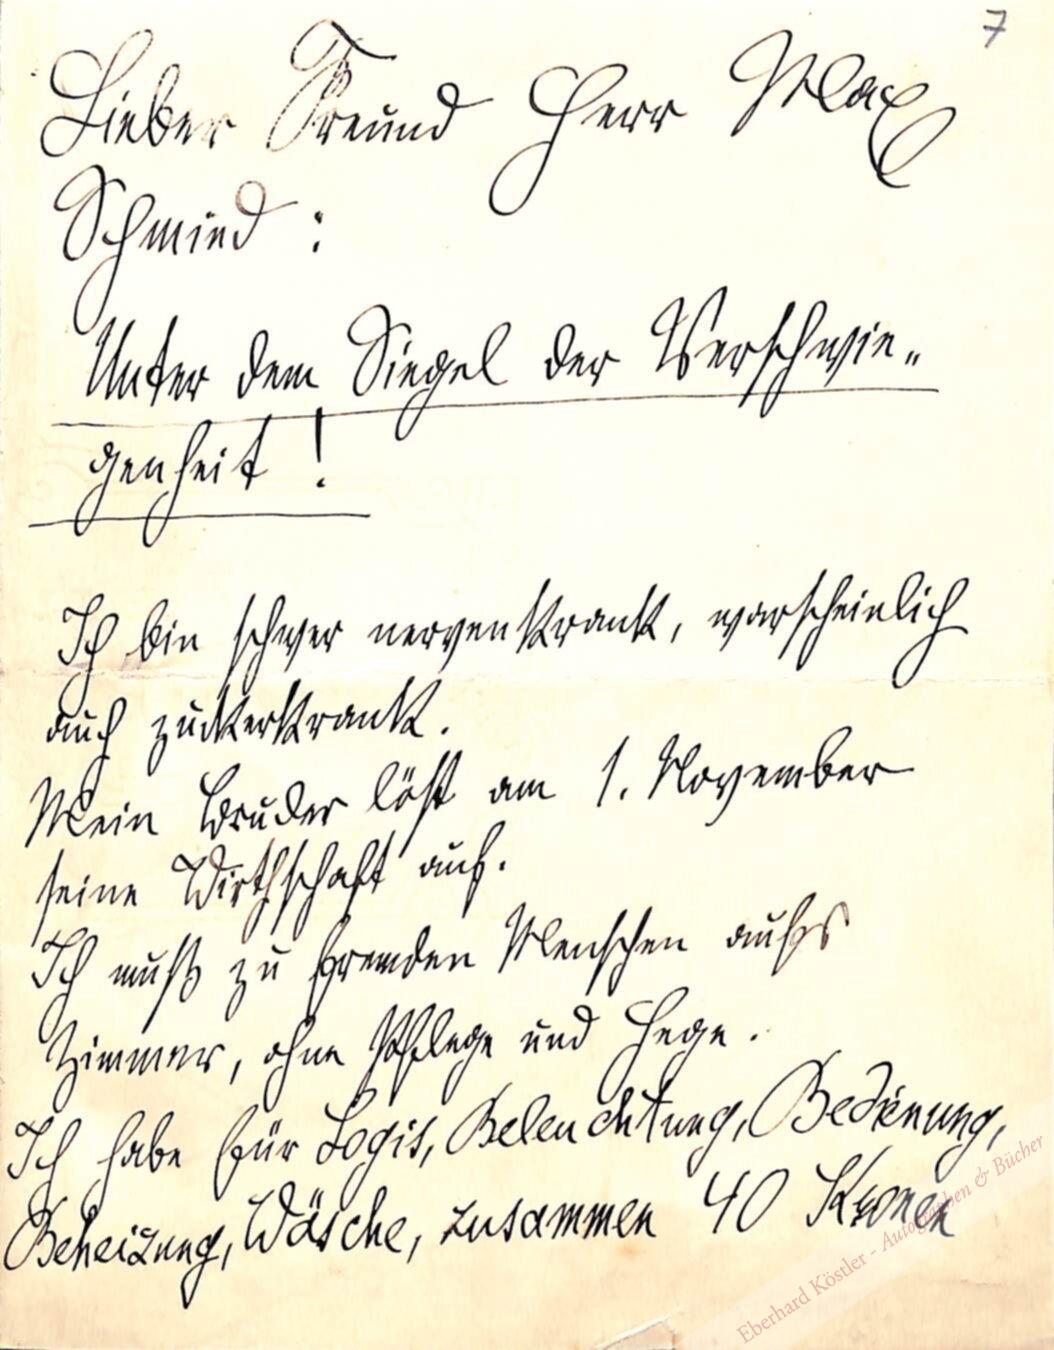 7
Lieber Freund Herr Max
Schmied :
Unter dem Siegel der Verschwie-
genheit !
Ich bin schwer nervenkrank, warscheinlich
auch zuckerkrank.
Mein Bruder löst am 1. November
seine Wirthschaft auf.
Ich muß zu fremden Menschen aufs
Zimmer, ohne Pflege und Hege.
Ich habe für Logis, Beleuchtung, Bedienung,
Beheizung, Wäsche, zusammen 40 Kronen
Eberhard Köstler - Autographen & Bücher